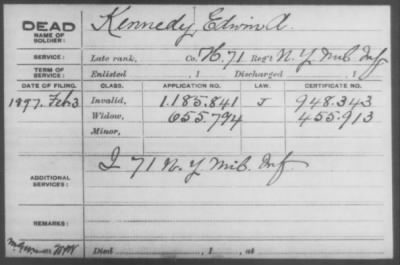 DEAD Kennedy, Edwin A.
NAME OF SOLDIER:
SERVICE: Late rank, Co. H. 71 Reg't N. Y. Mil. Inf
TERM OF SERVICE: Enlisted , 1 Discharged , 1
DATE OF FILING. CLASS. APPLICATION NO. LAW. CERTIFICATE NO.
1897. Feb 3 Invalid, 1.185.841 J 948.343
Widow, 655.794 455.913
Minor,
ADDITIONAL SERVICES: I 71 N. Y. Mil. Inf
REMARKS:
Died , 1 , at